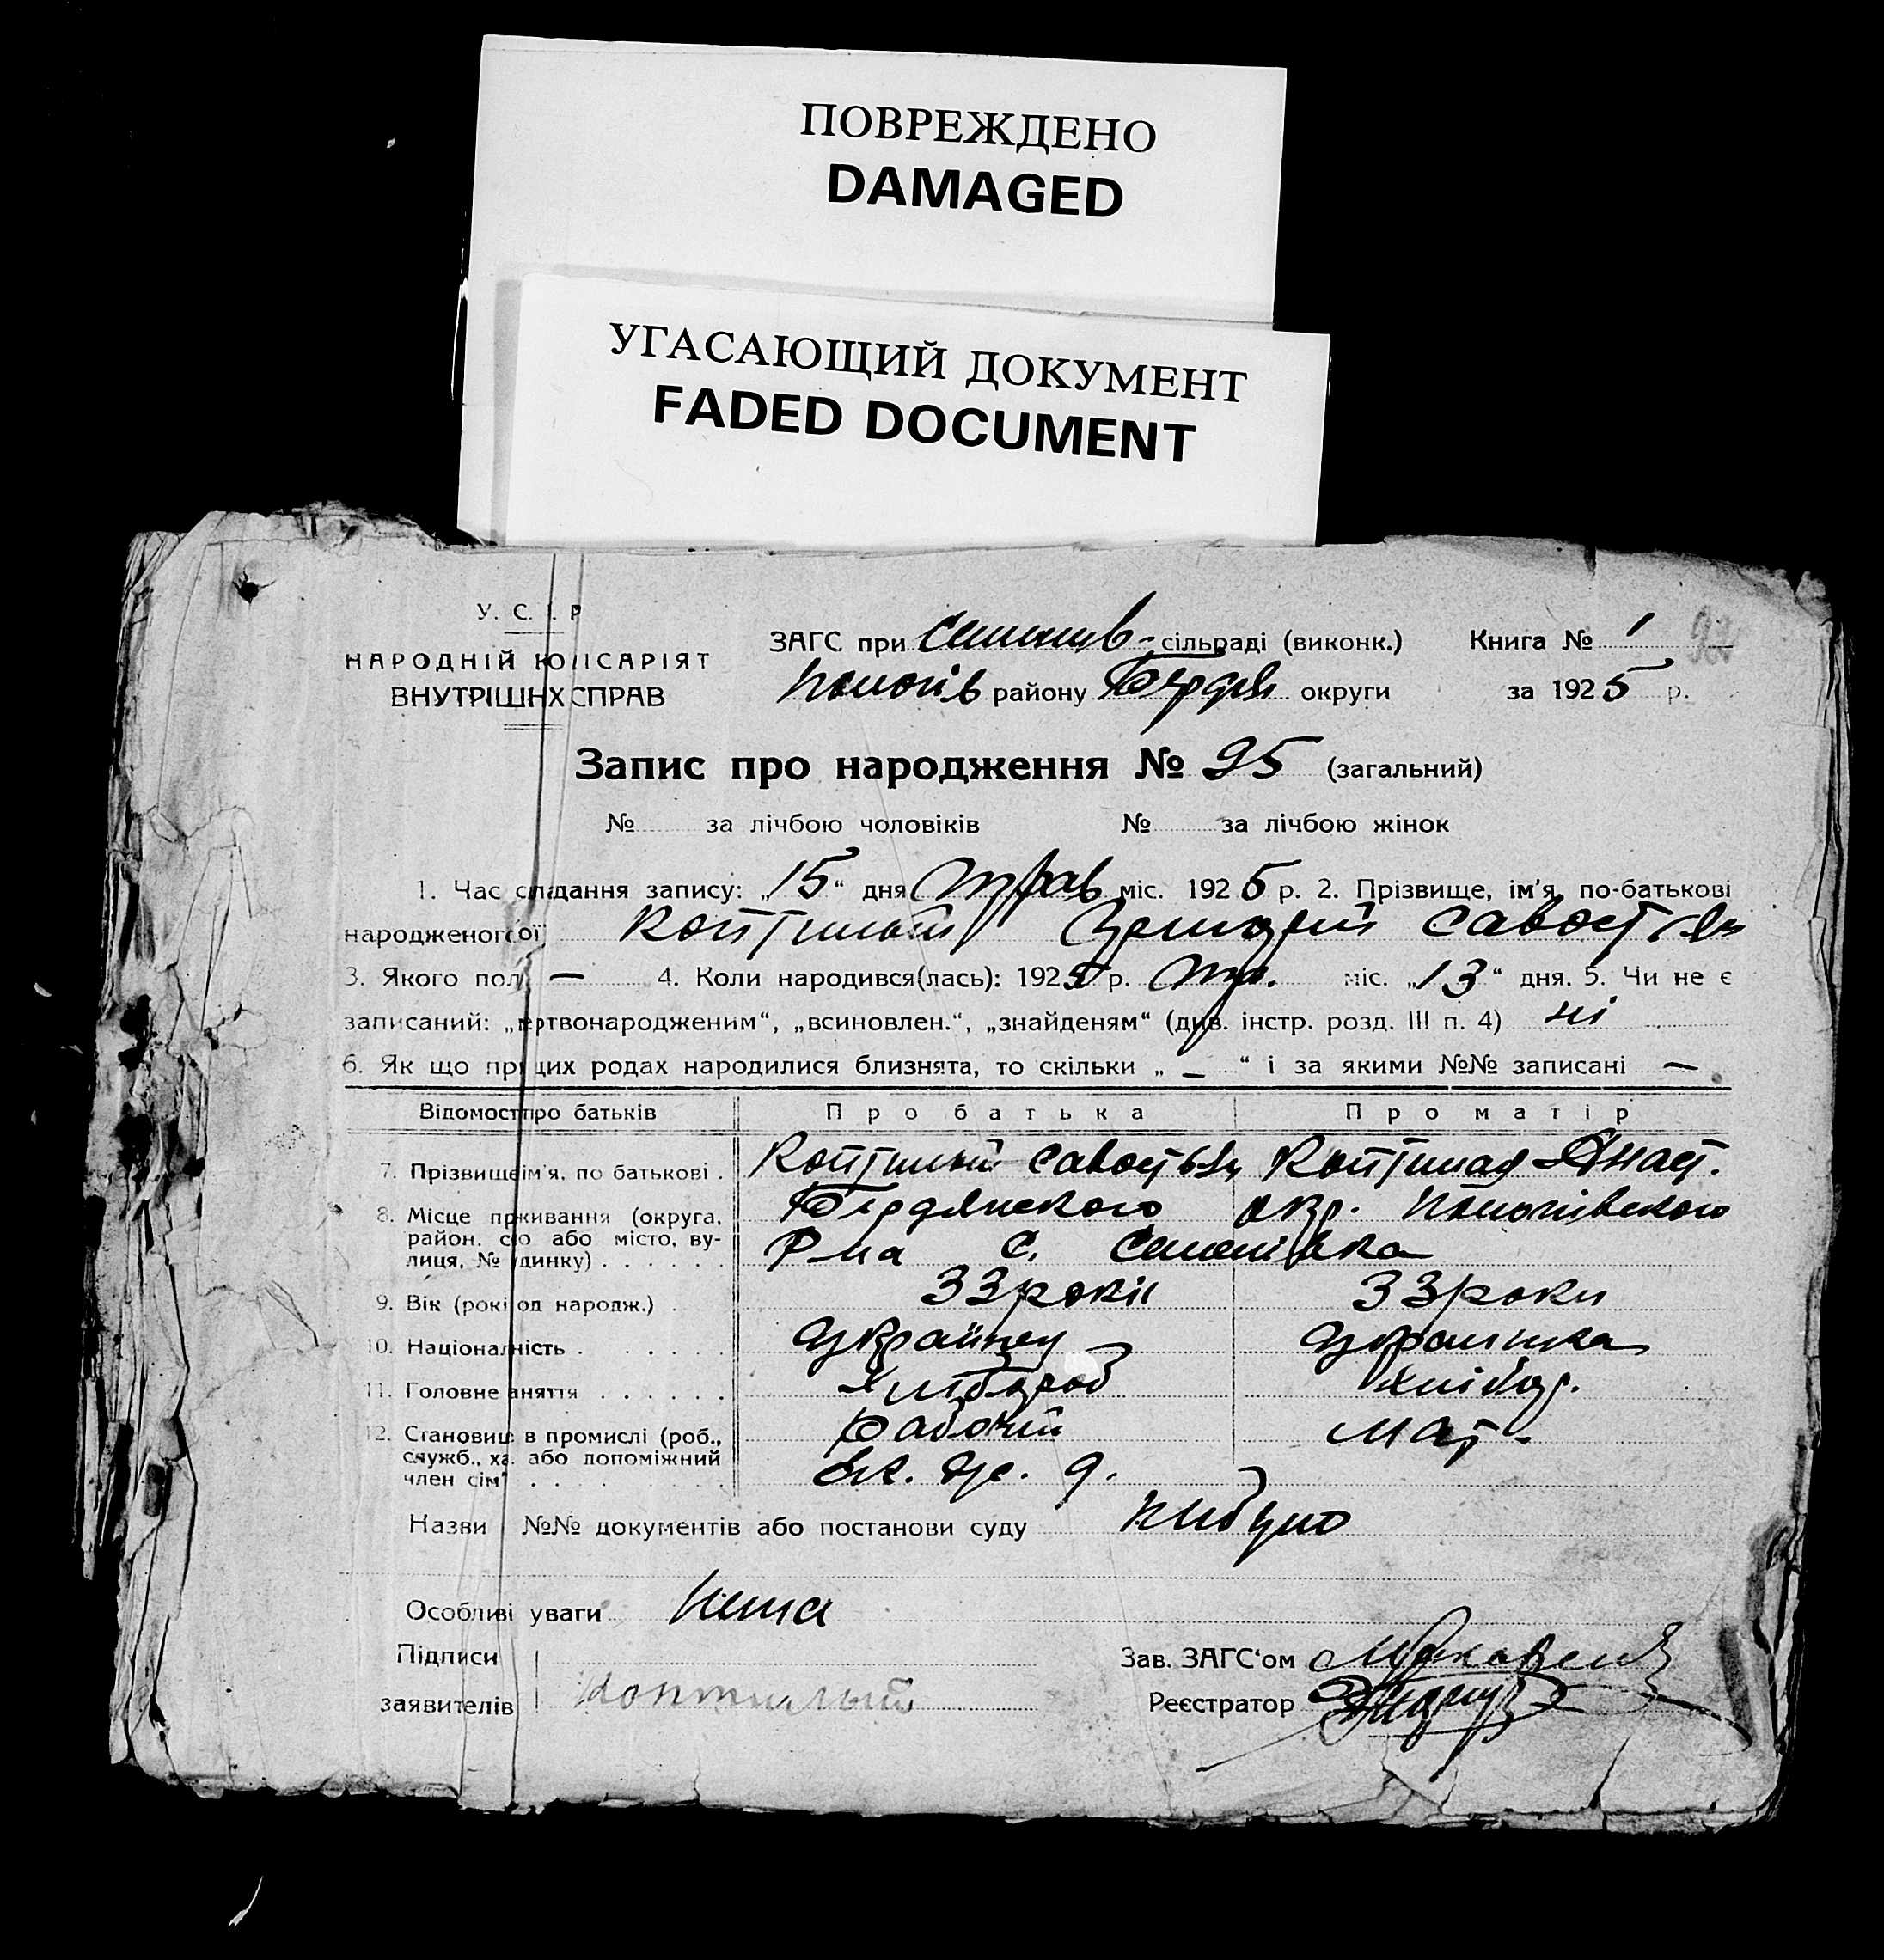 ПОВРЕЖДЕНО
DAMAGED
УГАСАЮЩИЙ ДОКУМЕНТ
FADED DOCUMENT
У. С. Р
НАРОДНІЙ КОМІСАРІЯТ
ВНУТРІШНІХ СПРАВ
ЗАГС при Семенив- сільраді (виконк.) Книга № 1
Пологів району Бердян округи за 1925 р.
Запис про народження № 25 (загальний)
№ за лічбою чоловіків № за лічбою жінок
1. Час складання запису: „15“ дня Трав міс. 1925 р. 2. Прізвище, ім'я, по-батькові
народженого(ої) Коптилый Савостян
3. Якого полу — 4. Коли народився(лась): 1925 р. Тр. міс. „13“ дня. 5. Чи не є
записаний: „мертвонародженим“, „всиновлен.“, „знайденям“ (див. інстр. розд. III п. 4) ні
6. Як що при цих родах народилися близнята, то скільки „ — “ і за якими №№ записані —
Відомості про батьків Про батька Про матір
7. Прізвище ім'я, по батькові . Коптилый Савостьян Коптилая Анаст.
8. Місце проживання (округа, Бердянского окр. Пологівского
район, село або місто, ву- Р-на С. Семенівка
лиця, № будинку) . . . . . .
9. Вік (років од народж.) . 33 роки 33 роки
10. Національність . . . . . . Українец Українка
11. Головне заняття . . . . . . Хлібороб Хлібор.
12. Становище в промислі (роб., Рабочий Мат.
служб., хаз. або допоміжний
член сім'ї
Назви і №№ документів або постанови суду
Особливі уваги Нема
Підписи Зав. ЗАГС'ом
заявителів Коптилый Реєстратор